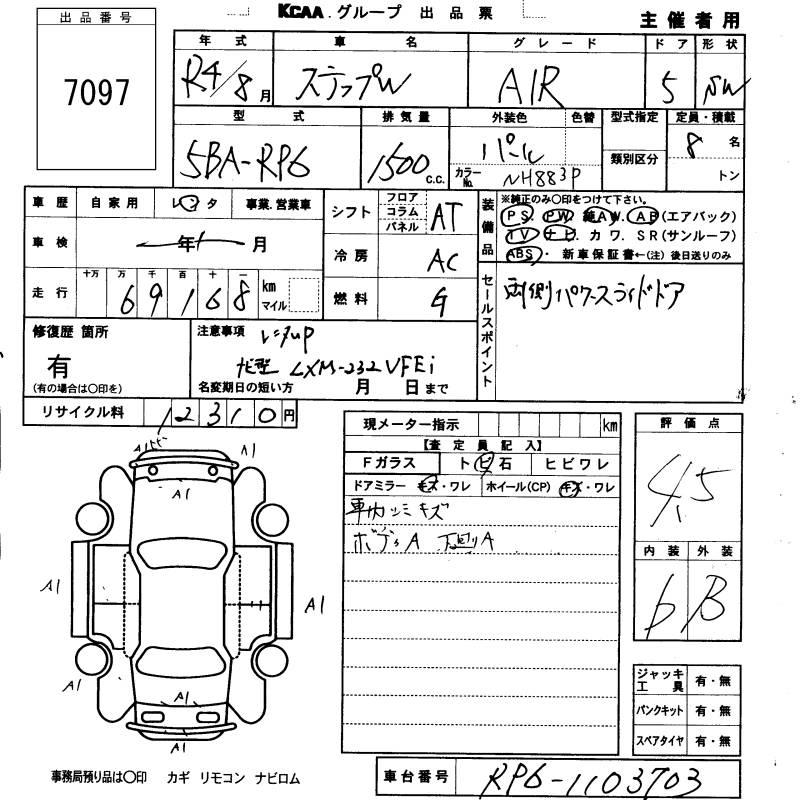 KCAA.グループ 出品票
主催者用
出品番号
7097
年式 車名 グレード ドア 形状
R4/8月 ステップW AIR 5 SW
型式 排気量 外装色 色替 型式指定 定員・積載
5BA-RP6 1500 c.c. パール 8名
カラーNo. NH883P 類別区分 トン
車歴 自家用 レンタ 事業.営業車
車検 年 月
走行 十万 万 千 百 十 一
69168 km マイル
シフト フロア コラム パネル AT
冷房 AC
燃料 G
装備品
※純正のみ〇印をつけて下さい。
PS. PW. 純AW. AB(エアバック)
TV ナビ. カワ. SR(サンルーフ)
ABS・ 新車保証書←(注)後日送りのみ
セールスポイント
両側パワースライドドア
修復歴 箇所
有
(有の場合は〇印を)
注意事項 レンタup
ナビ型 LXM-232VFEi
名変期日の短い方 月 日まで
リサイクル料 12310円
現メーター指示 km
【査定員記入】
Fガラス トビ石 ヒビワレ
ドアミラー キズ・ワレ ホイール(CP) キズ・ワレ
車内シミキズ
ボディA 下回りA
評価点
4.5
内装 外装
b B
ジャッキ工具 有・無
パンクキット 有・無
スペアタイヤ 有・無
A1
A1
A1
A1
A1
A1
A1
事務局預り品は〇印 カギ リモコン ナビロム
車台番号 RP6-1103703